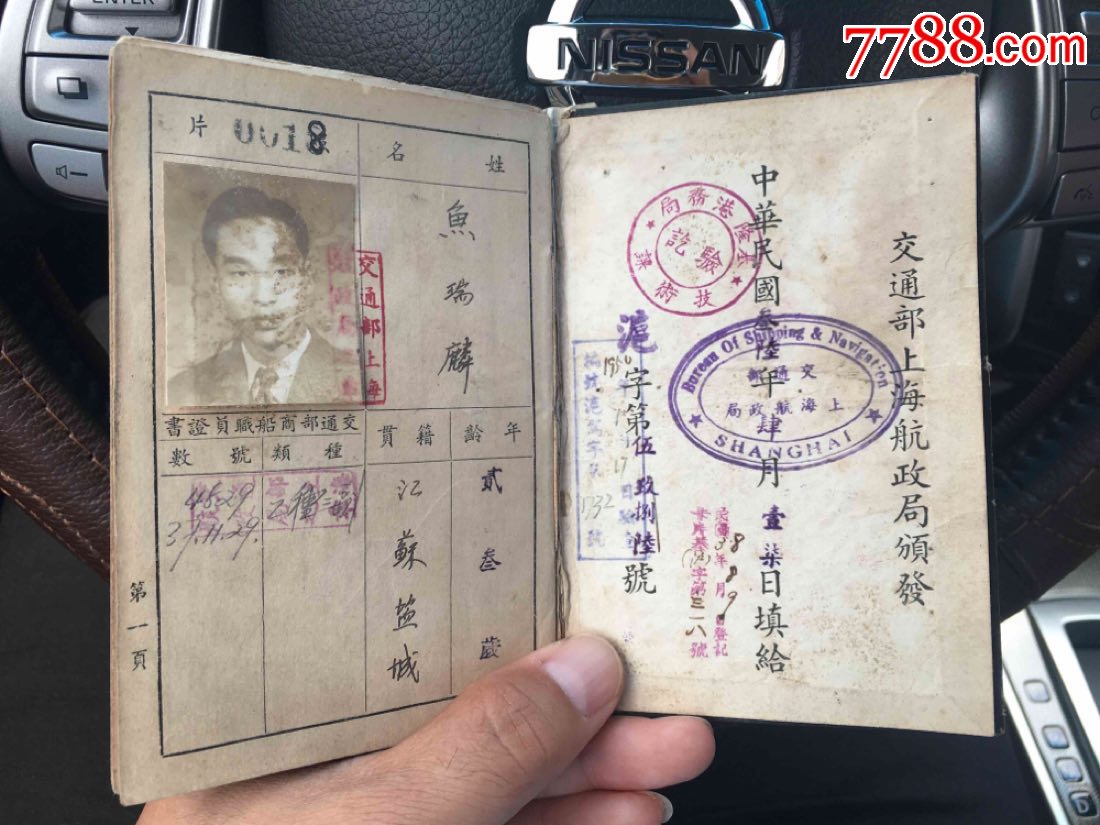 7788.com
ENTER
NISSAN
交通部上海航政局頒發
中華民國叁陸年肆月壹柒日填給
滬字第伍玖捌陸號
基隆港務局
驗訖
技術課
Bureau Of Shipping & Navigation
交通部
上海航政局
SHANGHAI
民國38年8月9日登記
姓名
魚瑞麟
片
0018
交通部上海
籍貫
江蘇盐城
年齡
貳叁歲
交通部商船職員證書
種類
號數
第一頁